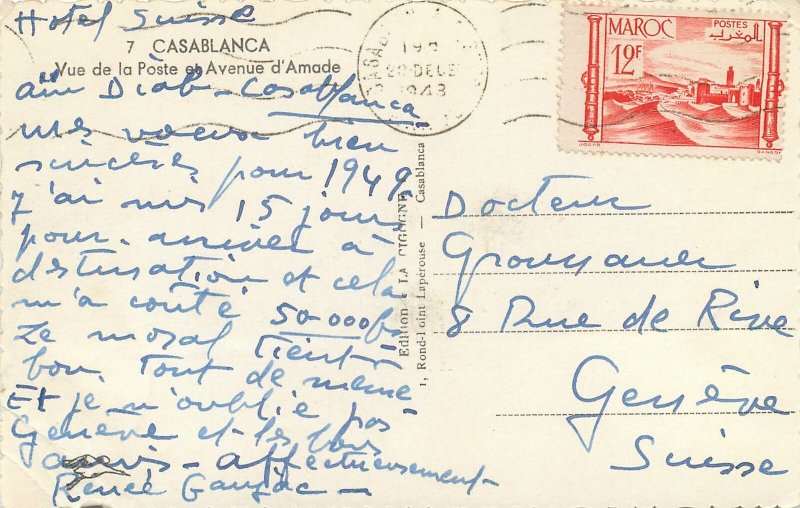 Hotel Suisse
7 CASABLANCA
Vue de la Poste et Avenue d'Amade
aïn Diab - Casablanca
mes voeux bien
sincères pour 1949
J'ai mis 15 jours
pour arriver à
destination et cela
m'a couté 50-000 fr
Le moral tient
bon. Tout de même
Et je n'oublie pas
Genève et les bons
amis - affectueusement
Renée
Edition LA CIGOGNE
1, Rond-Point Lapérouse — Casablanca
20 DECE
1948
MAROC
POSTES
المغرب
12F
Docteur
8 Rue de Rive
Genève
Suisse